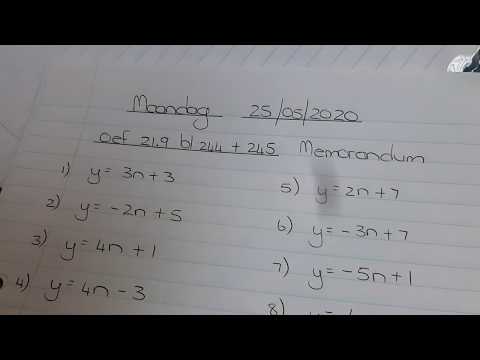 Maandag 25/05/2020
Oef 21.9 bl 244 + 245 Memorandum
1) y = 3n + 3
2) y = -2n + 5
3) y = 4n + 1
4) y = 4n - 3
5) y = 2n + 7
6) y = -3n + 7
7) y = -5n + 1
8)